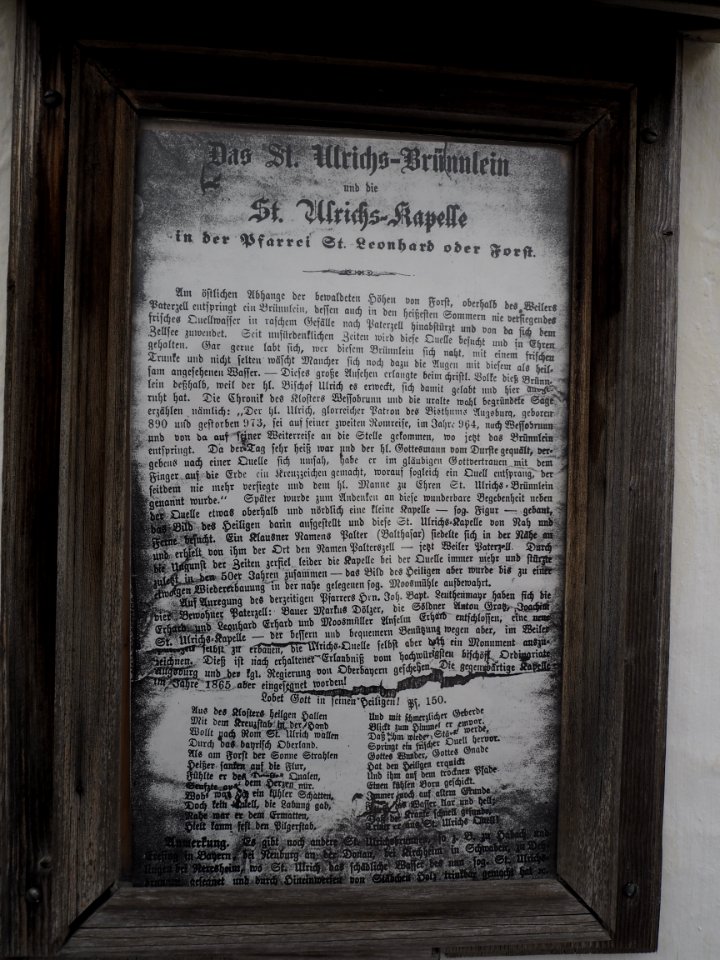 Das St. Ulrichs-Brünnlein
und die
St. Ulrichs-Kapelle
in der Pfarrei St. Leonhard oder Forst.
Am östlichen Abhange der bewaldeten Höhen von Forst, oberhalb des Weilers
Paterzell entspringt ein Brünnlein, dessen auch in den heißesten Sommern nie versiegendes
frisches Quellwasser in raschem Gefälle nach Paterzell hinabstürzt und von da sich dem
Zellsee zuwendet. Seit unfürdenklichen Zeiten wird diese Quelle besucht und in Ehren
gehalten. Gar gerne labt sich, wer diesem Brünnlein sich naht, mit einem frischen
Trunke und nicht selten wäscht Mancher sich noch dazu die Augen mit diesem als heil-
sam angesehenen Wasser. — Dieses große Ansehen erlangte beim christl. Volke dieß Brünn-
lein deßhalb, weil der hl. Bischof Ulrich es erweckt, sich damit gelabt und hier
ruht hat. Die Chronik des Klosters Wessobrunn und die uralte wohl begründete Sage
erzählen nämlich: „Der hl. Ulrich, glorreicher Patron des Bisthums Augsburg, geboren
890 und gestorben 973, sei auf seiner zweiten Romreise, im Jahre 964, nach Wessobrunn
und von da auf seiner Weiterreise an die Stelle gekommen, wo jetzt das Brünnlein
entspringt. Da der Tag sehr heiß war und der hl. Gottesmann vom Durste gequält, ver-
gebens nach einer Quelle sich umsah, habe er im gläubigen Gottvertrauen mit dem
Finger auf die Erde ein Kreuzzeichen gemacht, worauf sogleich ein Quell entsprang, der
seitdem nie mehr versiegte und dem hl. Manne zu Ehren St. Ulrichs-Brünnlein
genannt wurde.“ Später wurde zum Andenken an diese wunderbare Begebenheit neben
der Quelle etwas oberhalb und nördlich eine kleine Kapelle — sog. Figur — gebaut,
das Bild des Heiligen darin aufgestellt und diese St. Ulrichs-Kapelle von Nah und
Ferne besucht. Ein Klausner Namens Palter (Balthasar) siedelte sich in der Nähe an
und erhielt von ihm der Ort den Namen Palterszell — jetzt Weiler Paterzell. Durch
die Ungunst der Zeiten zerfiel leider die Kapelle bei der Quelle immer mehr und stürzte
zuletzt in den 50er Jahren zusammen — das Bild des Heiligen aber wurde bis zu einer
etwaigen Wiedererbauung in der nahe gelegenen sog. Moosmühle aufbewahrt.
Auf Anregung des derzeitigen Pfarrers Hrn. Joh. Bapt. Leuthenmayr haben sich die
vier Bewohner Paterzell: Bauer Markus Dölzer, die Söldner Anton Graf, Joachim
Erhard und Leonhard Erhard und Moosmüller Anselm Erhard entschlossen, eine neue
St. Ulrichs-Kapelle — der bessern und bequemern Benützung wegen aber, im Weiler
selbst zu erbauen, die Ulrichs-Quelle selbst aber durch ein Monument auszu-
zeichnen. Dieß ist nach erhaltener Erlaubniß vom hochwürdigsten bischöfl. Ordinariate
Augsburg und der kgl. Regierung von Oberbayern geschehen. Die gegenwärtige Kapelle
im Jahre 1865 aber eingesegnet worden!
Lobet Gott in seinen Heiligen! Ps. 150.
Aus des Klosters heilgen Hallen
Mit dem Kreuzstab in der Hand
Wollt nach Rom St. Ulrich wallen
Durch das bayrisch Oberland.
Als am Forst der Sonne Strahlen
Heißer sanken auf die Flur,
Fühlte er des Qualen,
Seufzte aus dem Herzen nur.
Wohl war da ein kühler Schatten,
Doch kein Quell, die Labung gab,
Nahe war er dem Ermatten,
Hielt kaum fest den Pilgerstab.
Und mit schmerzlicher Geberde
Blickt zum Himmel er empor.
Daß ihm wieder werde,
Springt ein frischer Quell hervor.
Gottes Wunder, Gottes Gnade
Hat den Heiligen erquickt
Und ihm auf dem trocknen Pfade
Einen kühlen Born geschickt.
Immer noch auf altem Grunde
das Wasser klar und hell;
der Kranke schnell gesunde,
er aus St. Ulrichs Quell!
Anmerkung. Es gibt noch andere St. Ulrichsbrunnen, so z. B. zu Habach und
in Bayern, bei Neuburg an der Donau, bei Kirchheim in Schwaben, zu
bei Neresheim, wo St. Ulrich das schädliche Wasser des nun sog. St. Ulrichs-
gesegnet und durch Hineinwerfen von Stäbchen Holz trinkbar gemacht hat